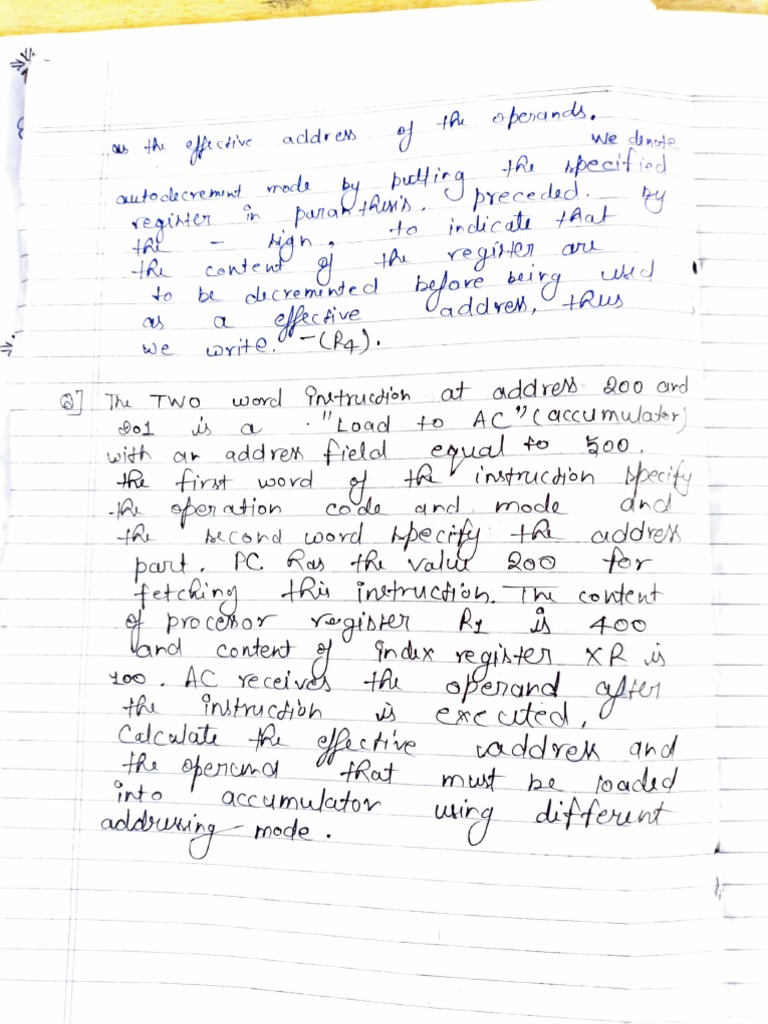 as the effective address of the operands.
We denote
autodecrement mode by putting the specified
register in paranthesis. preceded. by
the - sign. to indicate that
the content of the register are
to be decremented before being used
as a effective address, thus
we write. -(R4).
Q] The TWO word instruction at address 200 and
201 is a "Load to AC" (accumulator)
with an address field equal to 500.
the first word of the instruction specify
the operation code and mode and
the second word specify the address
part. PC has the value 200 for
fetching this instruction. The content
of processor register R1 is 400
and content of index register XR is
100. AC receives the operand after
the instruction is executed,
Calculate the effective address and
the operand that must be loaded
into accumulator using different
addressing mode.